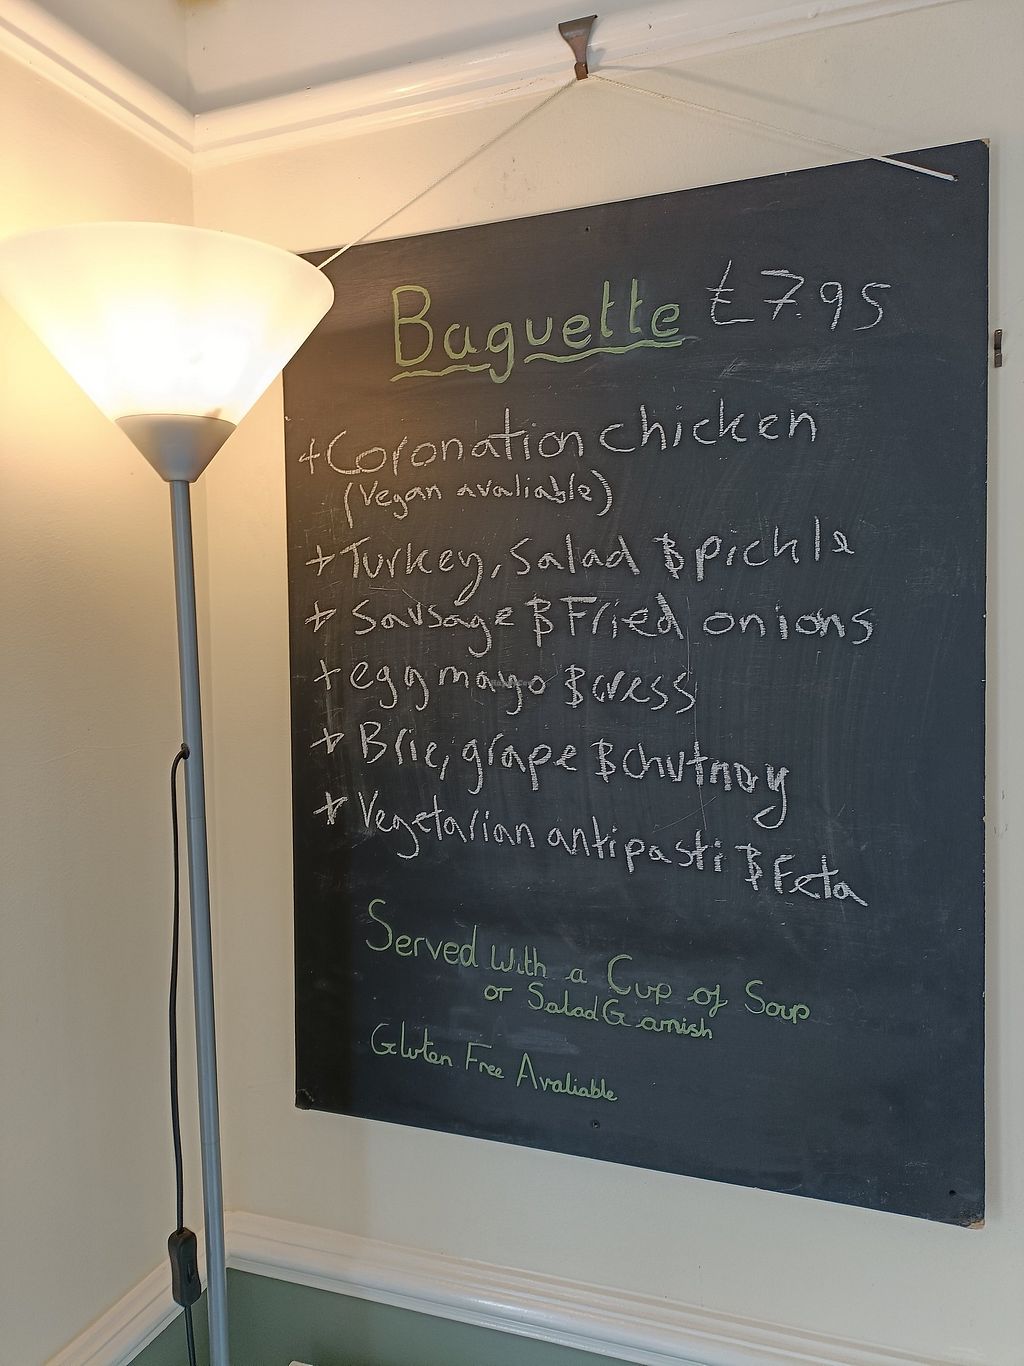 Baguette £7.95
+ Coronation chicken
(Vegan avaliable)
+ Turkey, Salad & pickle
+ Sausage & Fried onions
+ egg mayo & cress
+ Brie, grape & chutnay
+ Vegetarian antipasti & Feta
Served with a Cup of Soup
or Salad Garnish
Gluten Free Avaliable